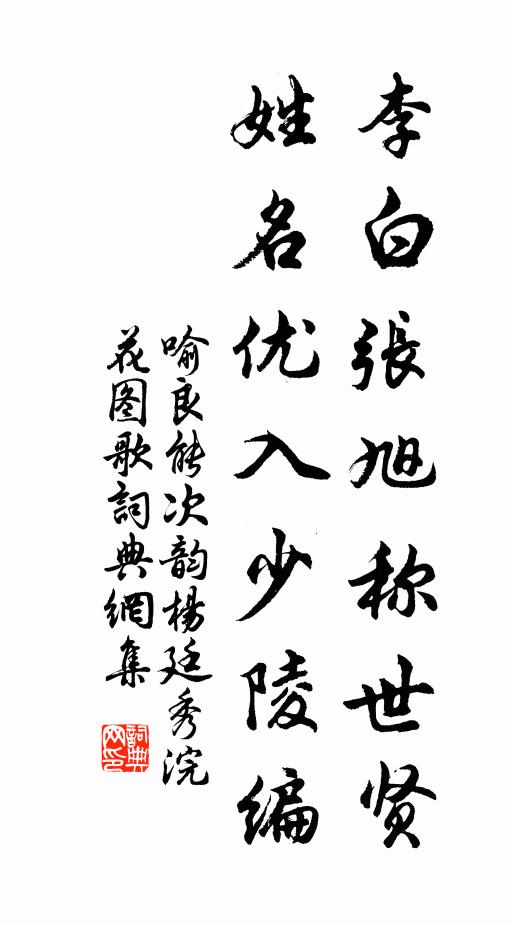 李白張旭称世贤
姓名优入少陵编
喻良能次韵楊廷秀浣
花图歌詞典網集
詞典网印